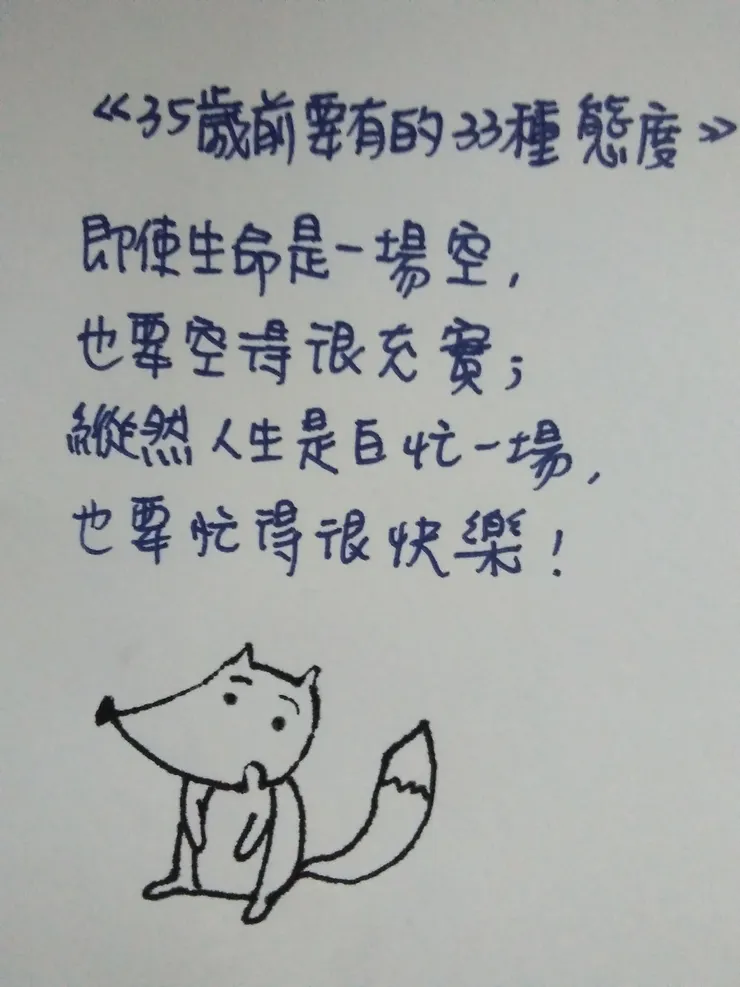 《35歲前要有的33種態度》
即使生命是一場空,
也要空得很充實;
縱然人生是白忙一場,
也要忙得很快樂!